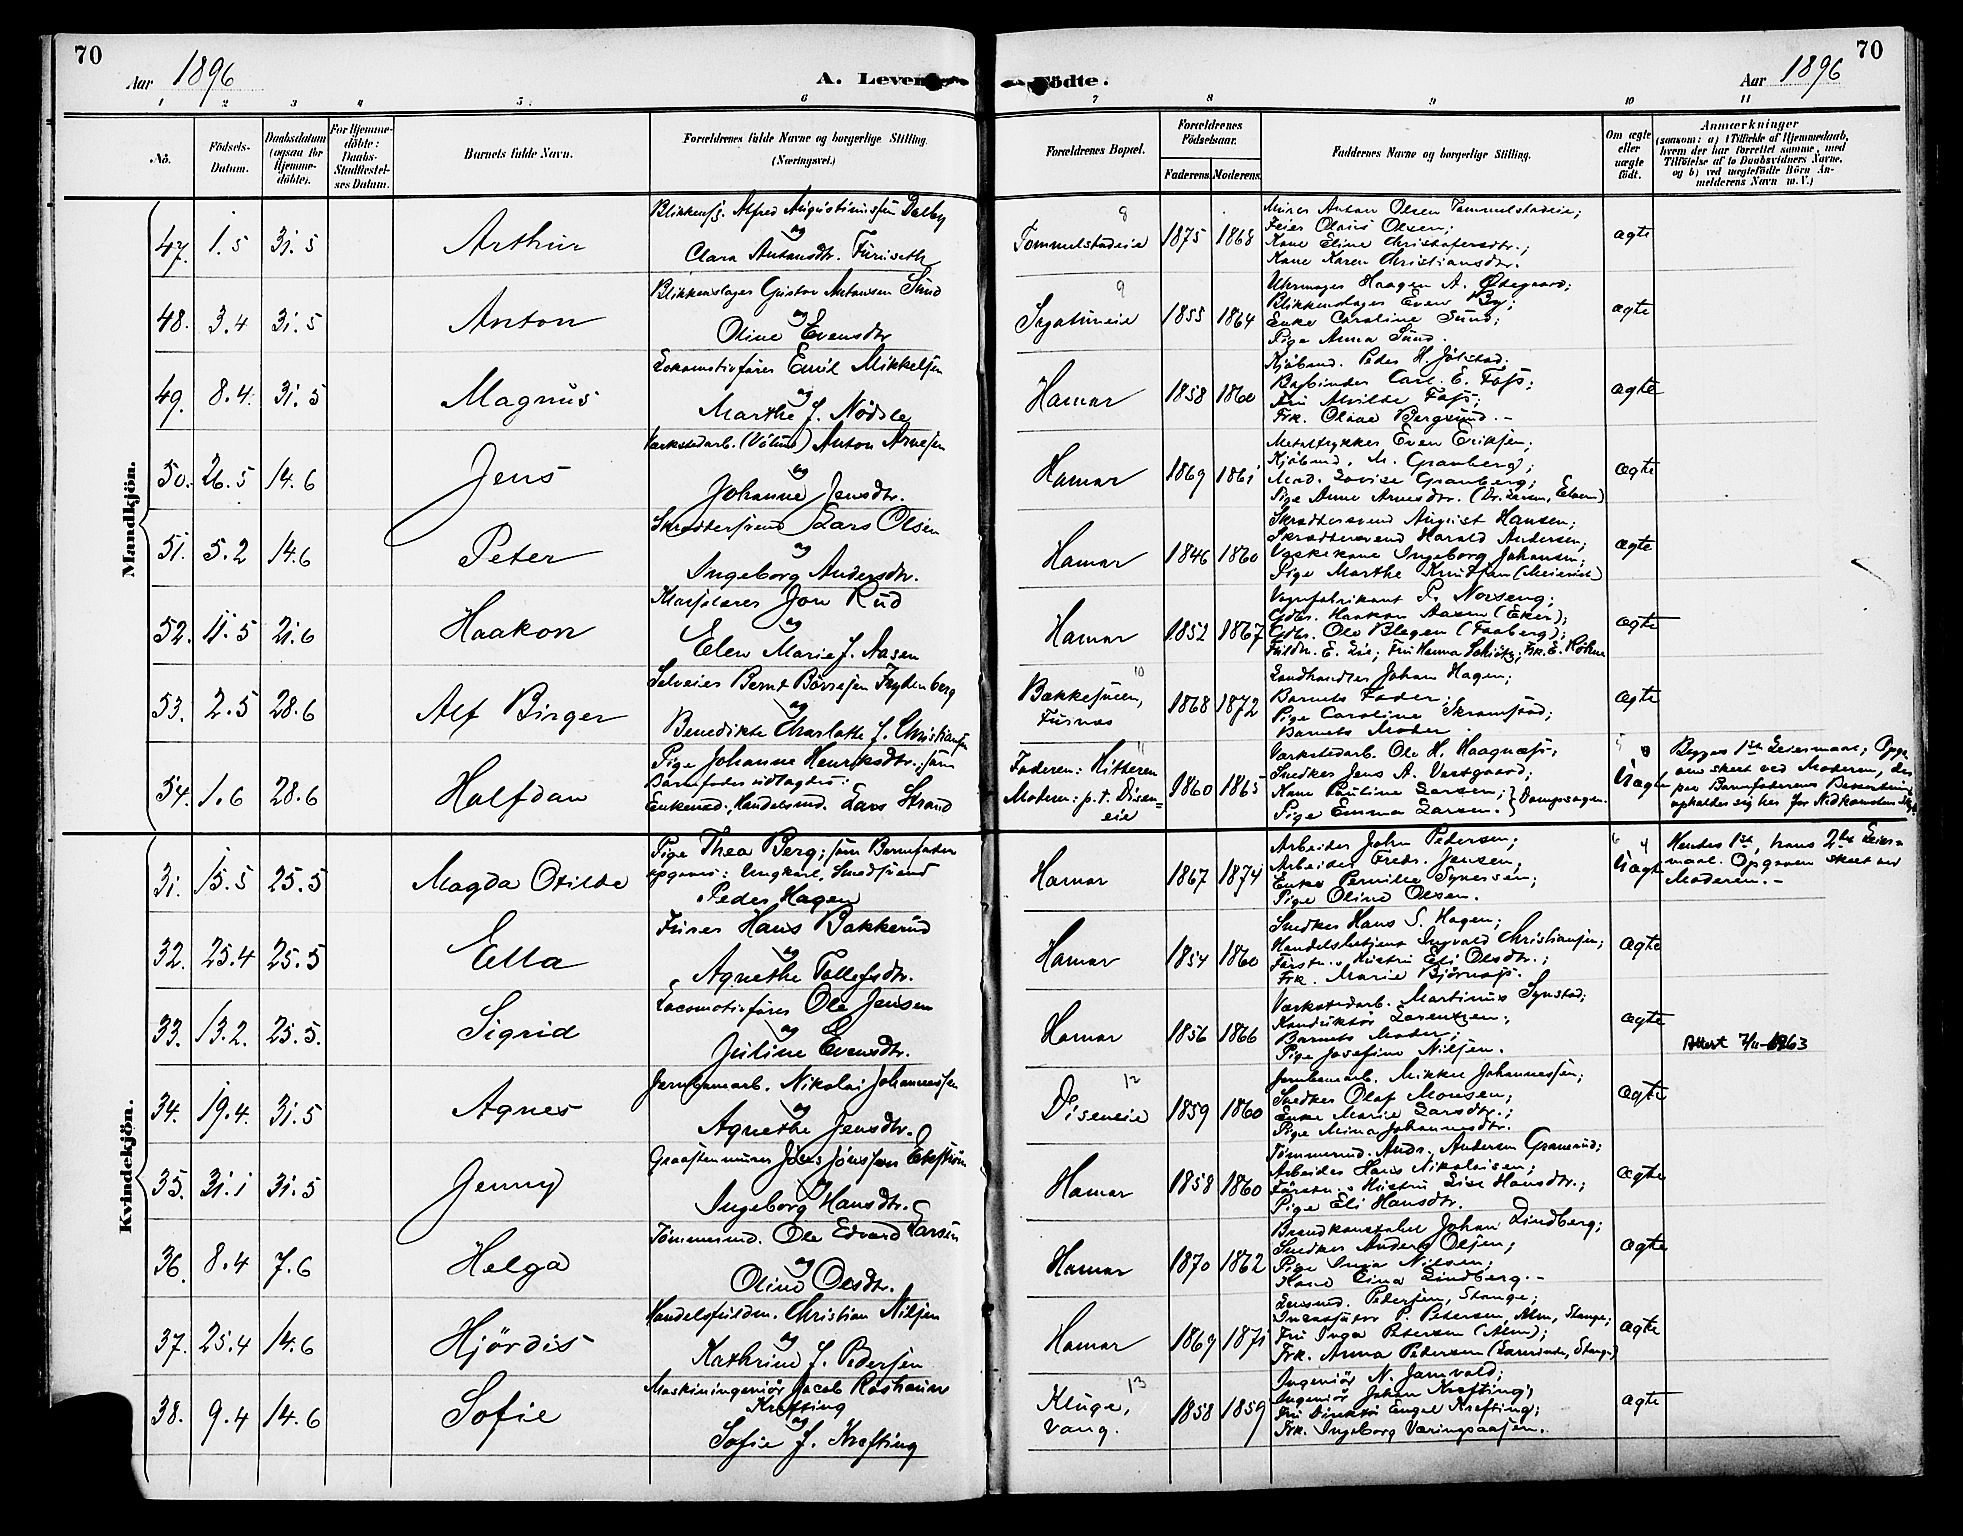 70
Aar 1896
A. Levende
Födte.
Aar 1896
70
1 2 3 4 5 6 7 8 9 10 11
No.
Födsels-
Datum.
Daabsdatum
(ogsaa for
Hjemme-
döbte).
For Hjemme-
döbte:
Daabs-
Stadfæstel-
ses Datum.
Barnets fulde Navn.
Forældrenes fulde Navne og borgerlige Stilling.
(Næringsvei.)
Forældrenes Bopæl.
Forældrenes
Födselsaar.
Faderens.
Moderens.
Faddernes Navne og borgerlige Stilling.
Om ægte
eller
uægte
födt.
Anmærkninger
(saasom: a) i Tilfælde af Hjemmedaab,
hvem der har forrettet samme, med
Tilföielse af to Daabsvidners Navne,
og b) ved uægtefödte Börn An-
melderens Navn m. V.)
Mandkjön.
47. 1.5 31.5 Arthur
Blikkensl. Alfred Augustinussen Dalby
og
Clara Antonsdtr. Furuseth
8
Tommelstadeie 1875 1868
Murer Anton Olsen Tommelstadeie;
Feier Olaus Olsen;
Kone Eline Christofersdtr.;
Kone Karen Christiansdtr.
ægte
48. 3.4 31.5 Anton
Blikkenslager Gustav Antonsen Sund
og
Oline Evensdtr
9
1855 1864
Uhrmager Haagen A. Ødegaard;
Blikkenslager Even By;
Enke Caroline Sund;
Pige Anna Sund.
ægte
49. 8.4. 31.5 Magnus
Lokomotivfører Emil Mikkelsen
og
Marthe J.
Hamar 1858 1860
Kjøbmd. Peder H. Jølstad.
Bogbinder Carl. E. Foss;
Fru Alvilde Foss;
Frk. Olave Bergsund.
ægte
50. 26.5 14.6 Jens
Værkstedarb. Anton Arnesen
og
Johanne Jensdtr.
Hamar 1869 1861
Metaltrykker Even Eriksen;
Kjøbmd. M. Granberg;
Mad. Lovise Granberg;
Pige Anne Arnesdtr.
ægte
51. 5.2 14.6 Peter
Skræddersvend Lars Olsen
og
Ingeborg Andersdtr.
Hamar 1846 1860
Skræddersvend August Hansen;
Skræddersvend Harald Andersen;
Vaskekone Ingeborg Johansen;
Pige Marthe Knutsen (Meieriet)
ægte
52. 11.5 21.6 Haakon
Jon Rud
og
Elen Marie J. Aasen
Hamar 1852 1867
Vognfabrikant P. Norseng;
Gdbr. Haakon Aasen (Eker);
Gdbr. Ole Blegen (Faaberg);
Fuldm. E. Lie; Fru Hanna Schiøtz; Frk. E.
ægte
53. 2.5 28.6 Alf Birger
Selveier Bernt Børresen Frydenberg
og
Benedikte Charlotte J. Christiansen
10
Bækkesveen,
Furnes
1868 1872
Landhandler Johan Hagen;
Barnets Fader;
Pige Caroline Skramstad;
Barnets Moder.
ægte
54. 1.6 28.6 Halfdan
Pige Johanne Henriksdtr.; som
Barnefader udlagdes:
Enkemd. Handelsmd. Lars Strand
11
Faderen: Hitteren
Moderen: p.t. Disen-
eie
1860 1865
Værkstedarb. Ole H. Haagnæss;
Snedker Jens A. Vestgaard;
Kone Pauline Larsen;
Pige Emma Larsen. } Dampsagen.
Uægte
Begges 1ste Leiermaal; Opga-
ven skeet ved Moderen, der
paa Barnefaderens Bekostning
opholder sig her for Nedkomstens Skyld
Kvindekjön.
31. 15.5 25.5 Magda Otilde
Pige Thea Berg; som Barnefader
opgaves: Ungkarl, Smedsvend
Peder Hagen
Hamar 1867 1874
Arbeider John Pedersen;
Arbeider Fredr. Jensen;
Enke Pernille Syversen;
Pige Oline Olsen.
Uægte
Hendes 1ste, hans 2det Leier-
maal. Opgaven skeet ved
Moderen. -
32. 25.4 25.5 Ella
Furer Hans Bakkerud
og
Agnethe Tollefsdtr.
Hamar 1854 1860
Snedker Hans S. Hagen;
Handelsbetjent Ingvald Christiansen;
Førstn.s Hustru Eli Olsdtr.;
Frk. Marie Bjørnaas.
ægte
33. 13.2. 25.5. Sigrid
Locomotivfører Ole Jensen
og
Juline Evensdtr.
Hamar 1856 1866
Værkstedarb. Martinus Synstad;
Konduktør Lorentzen;
Barnets Moder;
Pige Josefine Nilsen.
ægte
Attest 7/11-1963
34. 19.4. 31.5 Agnes
Jernbanearb. Nikolai Johannessen
og
Agnethe Jensdtr.
12
Diseneie 1859 1860
Jernbanearb. Mikkel Johannessen;
Snedker Olaf Monsen;
Enke Marie Larsdtr.;
Pige Mina Johannesdtr.
ægte
35. 31.1 31.5 Jenny
Graastenmurer Jöns Jönssen Ekström
og
Ingeborg Hansdtr.
Hamar 1858 1860
Tömmermd. Andr. Andersen Gramrud;
Arbeider Hans Nikolaisen;
Førstn.s Hustru Lise Hansdtr.;
Pige Eli Hansdtr.
ægte
36. 8.4 7.6 Helga
Tømmermd. Ole Edvard Larsen
og
Oline Olsdtr.
Hamar 1870 1862
Brandkonstabel Johan Lindberg;
Snedker Anders Olsen;
Pige Inga Nilsen;
Kone Lina Lindberg.-
ægte
37. 25.4 14.6 Hjördis
Handelsfuldm. Christian Nilsen
og
Kathrine J. Pedersen
Hamar 1869 1871
Lensmd. Pedersen, Stange;
P. Petersen, Alm, Stange;
Fru Inga Petersen (Alm);
Frk. Anna Pedersen (Lærerinde, Stange)
ægte
38. 9.4 14.6 Sofie
Maskiningeniør Jacob Roshauw
Krefting
og
Sofie J. Krefting
13
Kluge,
Vang.
1858 1859
Ingeniør N. Jamvold;
Ingeniør Johan Krefting;
Fru Direktør Engel Krefting;
Frk. Ingeborg Væringsaasen.
ægte